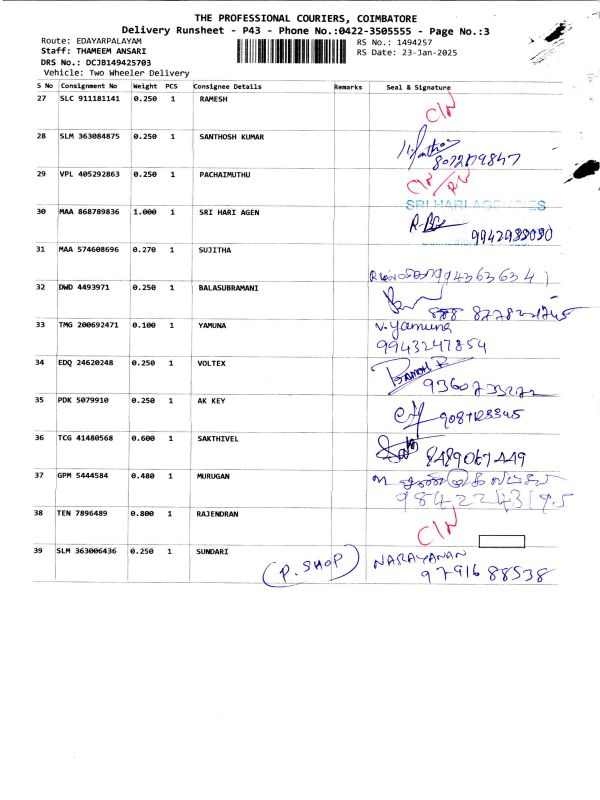 THE PROFESSIONAL COURIERS, COIMBATORE
Delivery Runsheet - P43 - Phone No.:0422-3505555 - Page No.:3
Route: EDAYARPALAYAM
RS No.: 1494257
Staff: THAMEEM ANSARI
RS Date: 23-Jan-2025
DRS No.: DCJB149425703
Vehicle: Two Wheeler Delivery
S No Consignment No Weight PCS Consignee Details Remarks Seal & Signature
27 SLC 911181141 0.250 1 RAMESH
C/N
28 SLM 363084875 0.250 1 SANTHOSH KUMAR
29 VPL 405292863 0.250 1 PACHAIMUTHU
C/N
30 MAA 868789836 1.000 1 SRI HARI AGEN
SRI HARI AGENCIES
31 MAA 574608696 0.270 1 SUJITHA
9943636341
32 DWD 4493971 0.250 1 BALASUBRAMANI
33 TMG 200692471 0.100 1 YAMUNA
V. Yamuna
9943247854
34 EDQ 24620248 0.250 1 VOLTEX
35 PDK 5079910 0.250 1 AK KEY
36 TCG 41480568 0.600 1 SAKTHIVEL
8489067449
37 GPM 5444584 0.480 1 MURUGAN
38 TEN 7896489 0.800 1 RAJENDRAN
C/N
39 SLM 363006436 0.250 1 SUNDARI
(P. SHOP)
NARAYANAN
9791688538